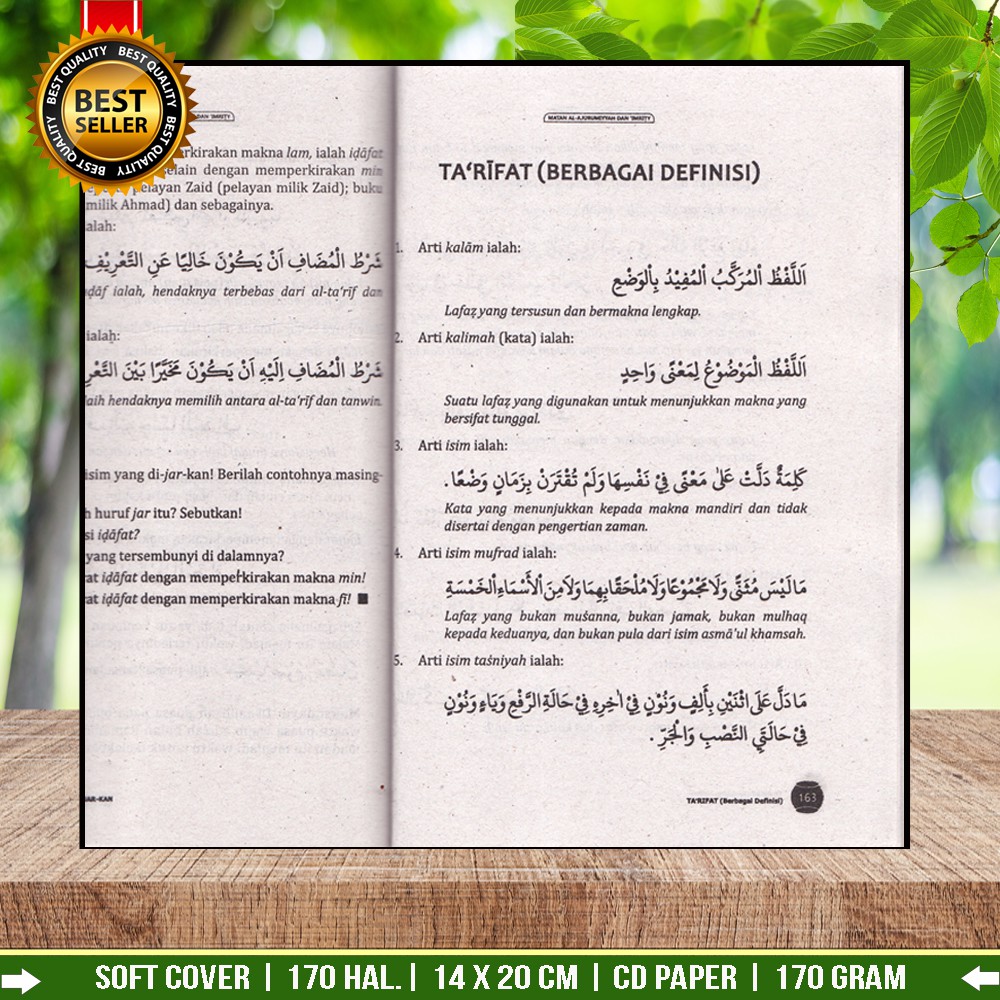 BEST QUALITY BEST QUALITY BEST QUALITY BEST QUALITY
BEST
SELLER
DAN 'IMRITY
memperkirakan makna lam, ialah iḍāfat
selain dengan memperkirakan min
pelayan Zaid (pelayan milik Zaid); buku
milik Ahmad) dan sebagainya.
ialah:
شَرْطُ الْمُضَافِ اَنْ يَكُوْنَ خَالِيًا عَنِ التَّعْرِيْفِ
ialah, hendaknya terbebas dari al-ta'rīf dan
ialah:
شَرْطُ الْمُضَافِ اِلَيْهِ اَنْ يَكُوْنَ مُخَيَّرًا بَيْنَ
hendaknya memilih antara al-ta'rīf dan tanwin.
isim yang di-jar-kan! Berilah contohnya masing-
huruf jar itu? Sebutkan!
iḍāfat?
yang tersembunyi di dalamnya?
iḍāfat dengan memperkirakan makna min!
iḍāfat dengan memperkirakan makna fī! ■
JAR-KAN
MATAN AL-AJURUMIYYAH DAN 'IMRITY
TA‘RĪFAT (BERBAGAI DEFINISI)
1. Arti kalām ialah:
اَللَّفْظُ الْمُرَكَّبُ الْمُفِيْدُ بِالْوَضْعِ
Lafaẓ yang tersusun dan bermakna lengkap.
2. Arti kalimah (kata) ialah:
اَللَّفْظُ الْمَوْضُوْعُ لِمَعْنًى وَاحِدٍ
Suatu lafaẓ yang digunakan untuk menunjukkan makna yang
bersifat tunggal.
3. Arti isim ialah:
كَلِمَةٌ دَلَّتْ عَلىٰ مَعْنًى فِيْ نَفْسِهَا وَلَمْ تُقْتَرَنْ بِزَمَانٍ وَضْعًا.
Kata yang menunjukkan kepada makna mandiri dan tidak
disertai dengan pengertian zaman.
4. Arti isim mufrad ialah:
مَا لَيْسَ مُثَنًّى وَلَا مَجْمُوْعًا وَلَا مُلْحَقًا بِهِمَا وَلَا مِنَ الْأَسْمَاءِ الْخَمْسَةِ
Lafaẓ yang bukan muṡanna, bukan jamak, bukan mulhaq
kepada keduanya, dan bukan pula dari isim asmā'ul khamsah.
5. Arti isim taṡniyah ialah:
مَا دَلَّ عَلَى اثْنَيْنِ بِأَلِفٍ وَنُوْنٍ فِيْ اٰخِرِهِ فِيْ حَالَةِ الرَّفْعِ وَيَاءٍ وَنُوْنٍ
فِيْ حَالَتَيِ النَّصْبِ وَالْجَرِّ .
TA'RIFAT (Berbagai Definisi) 163
SOFT COVER | 170 HAL. | 14 X 20 CM | CD PAPER | 170 GRAM